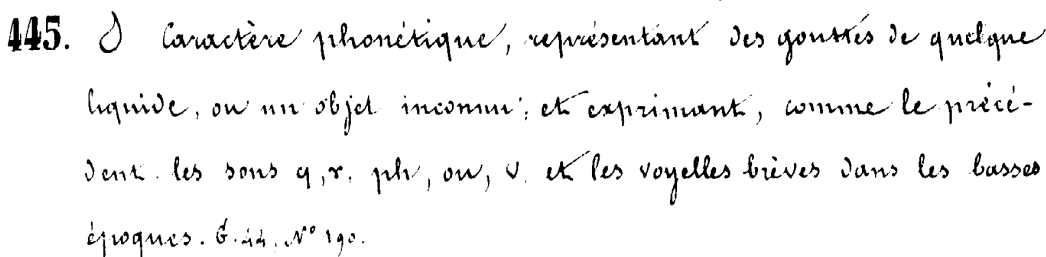 445. Caractère phonétique, représentant des gouttes de quelque
liquide, ou un objet inconnu; et exprimant, comme le précé-
dent. les sons q, r, ph, ou, v. et les voyelles brèves dans les basses
époques. G. 44. N° 190.